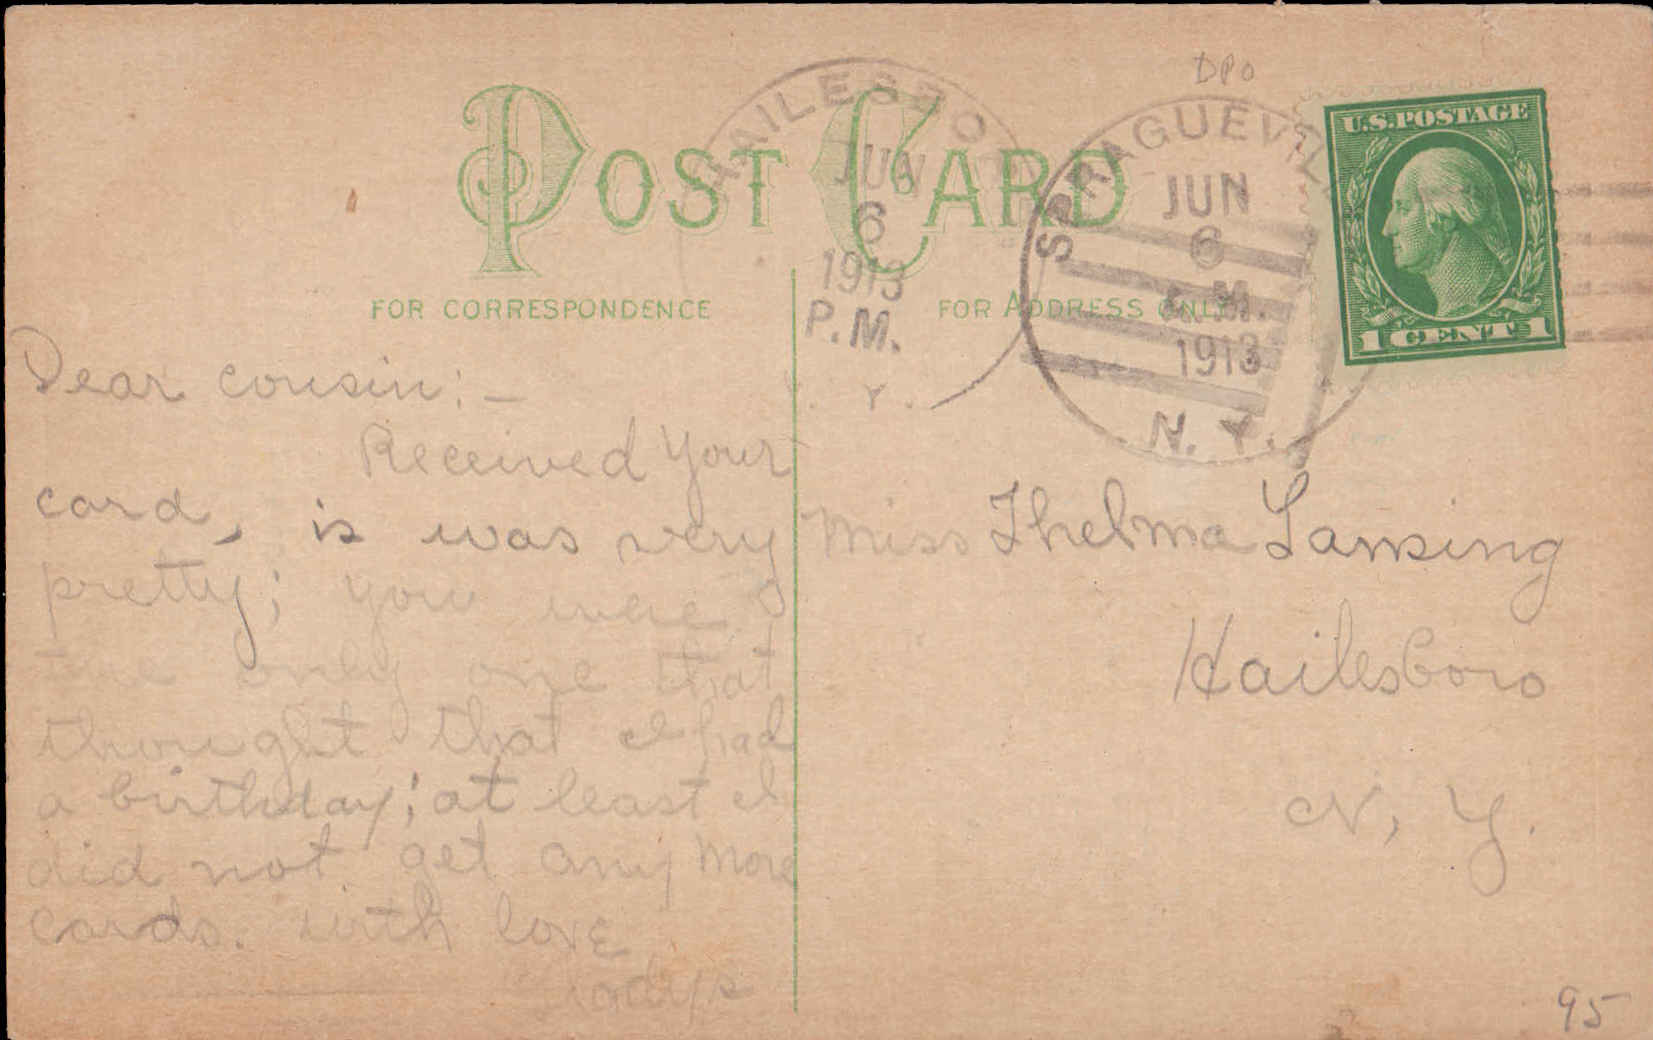 DPO
HAILESBOR
JUN
6
1913
P.M.
Y.
SPRAGUEVILL
JUN
6
M.
1913
N. Y.
U.S. POSTAGE
1 CENT 1
POST CARD
FOR CORRESPONDENCE
FOR ADDRESS ONLY
Dear cousin:—
Received your
card, is was very
pretty; you were
the only one that
thought that I had
a birthday; at least I
did not get any more
cards. with love
Miss Thelma Lansing
Hailesboro
N, Y.
95